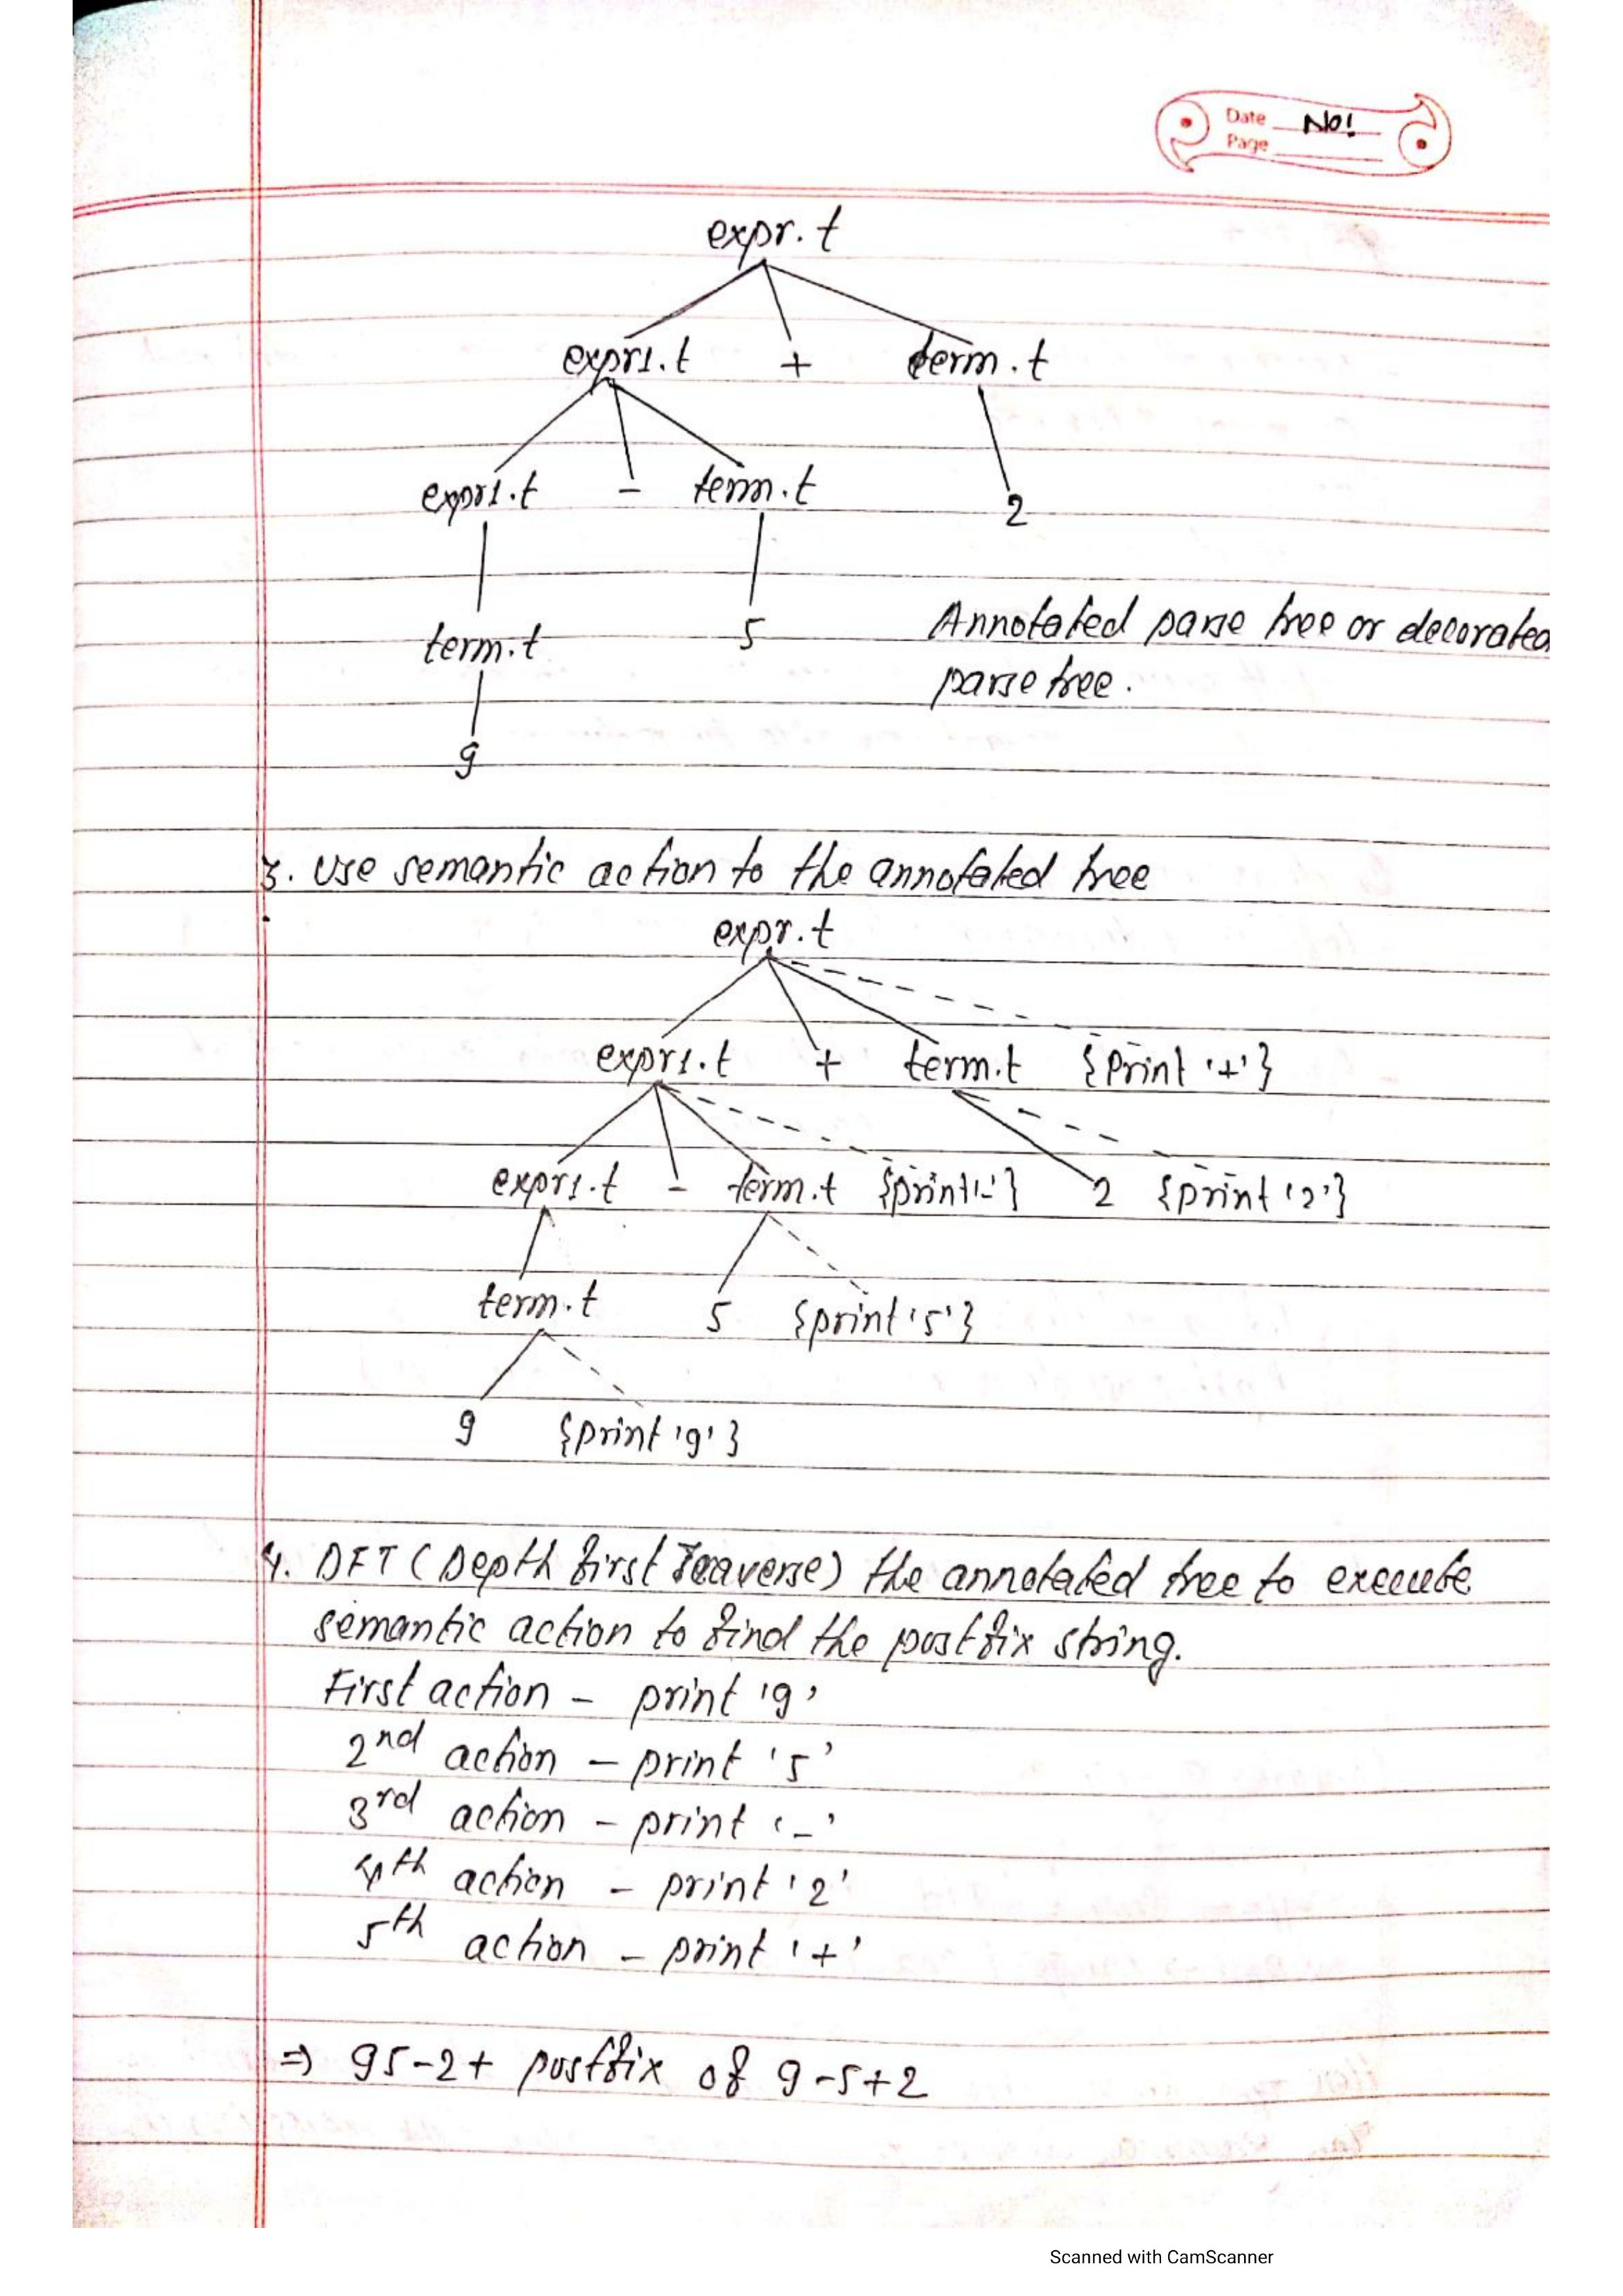 Date No!
Page
expr.t
expr1.t + term.t
expr1.t - term.t 2
term.t 5 Annotated parse tree or decorated
parse tree.
9
3. Use semantic action to the annotated tree
expr.t
expr1.t + term.t {Print '+'}
expr1.t - term.t {print'-'} 2 {print '2'}
term.t 5 {print '5'}
9 {print '9'}
4. DFT (Depth first Traverse) the annotated tree to execute
semantic action to find the postfix string.
First action - print '9'
2nd action - print '5'
3rd action - print '-'
4th action - print '2'
5th action - print '+'
⇒ 95-2+ postfix of 9-5+2
Scanned with CamScanner